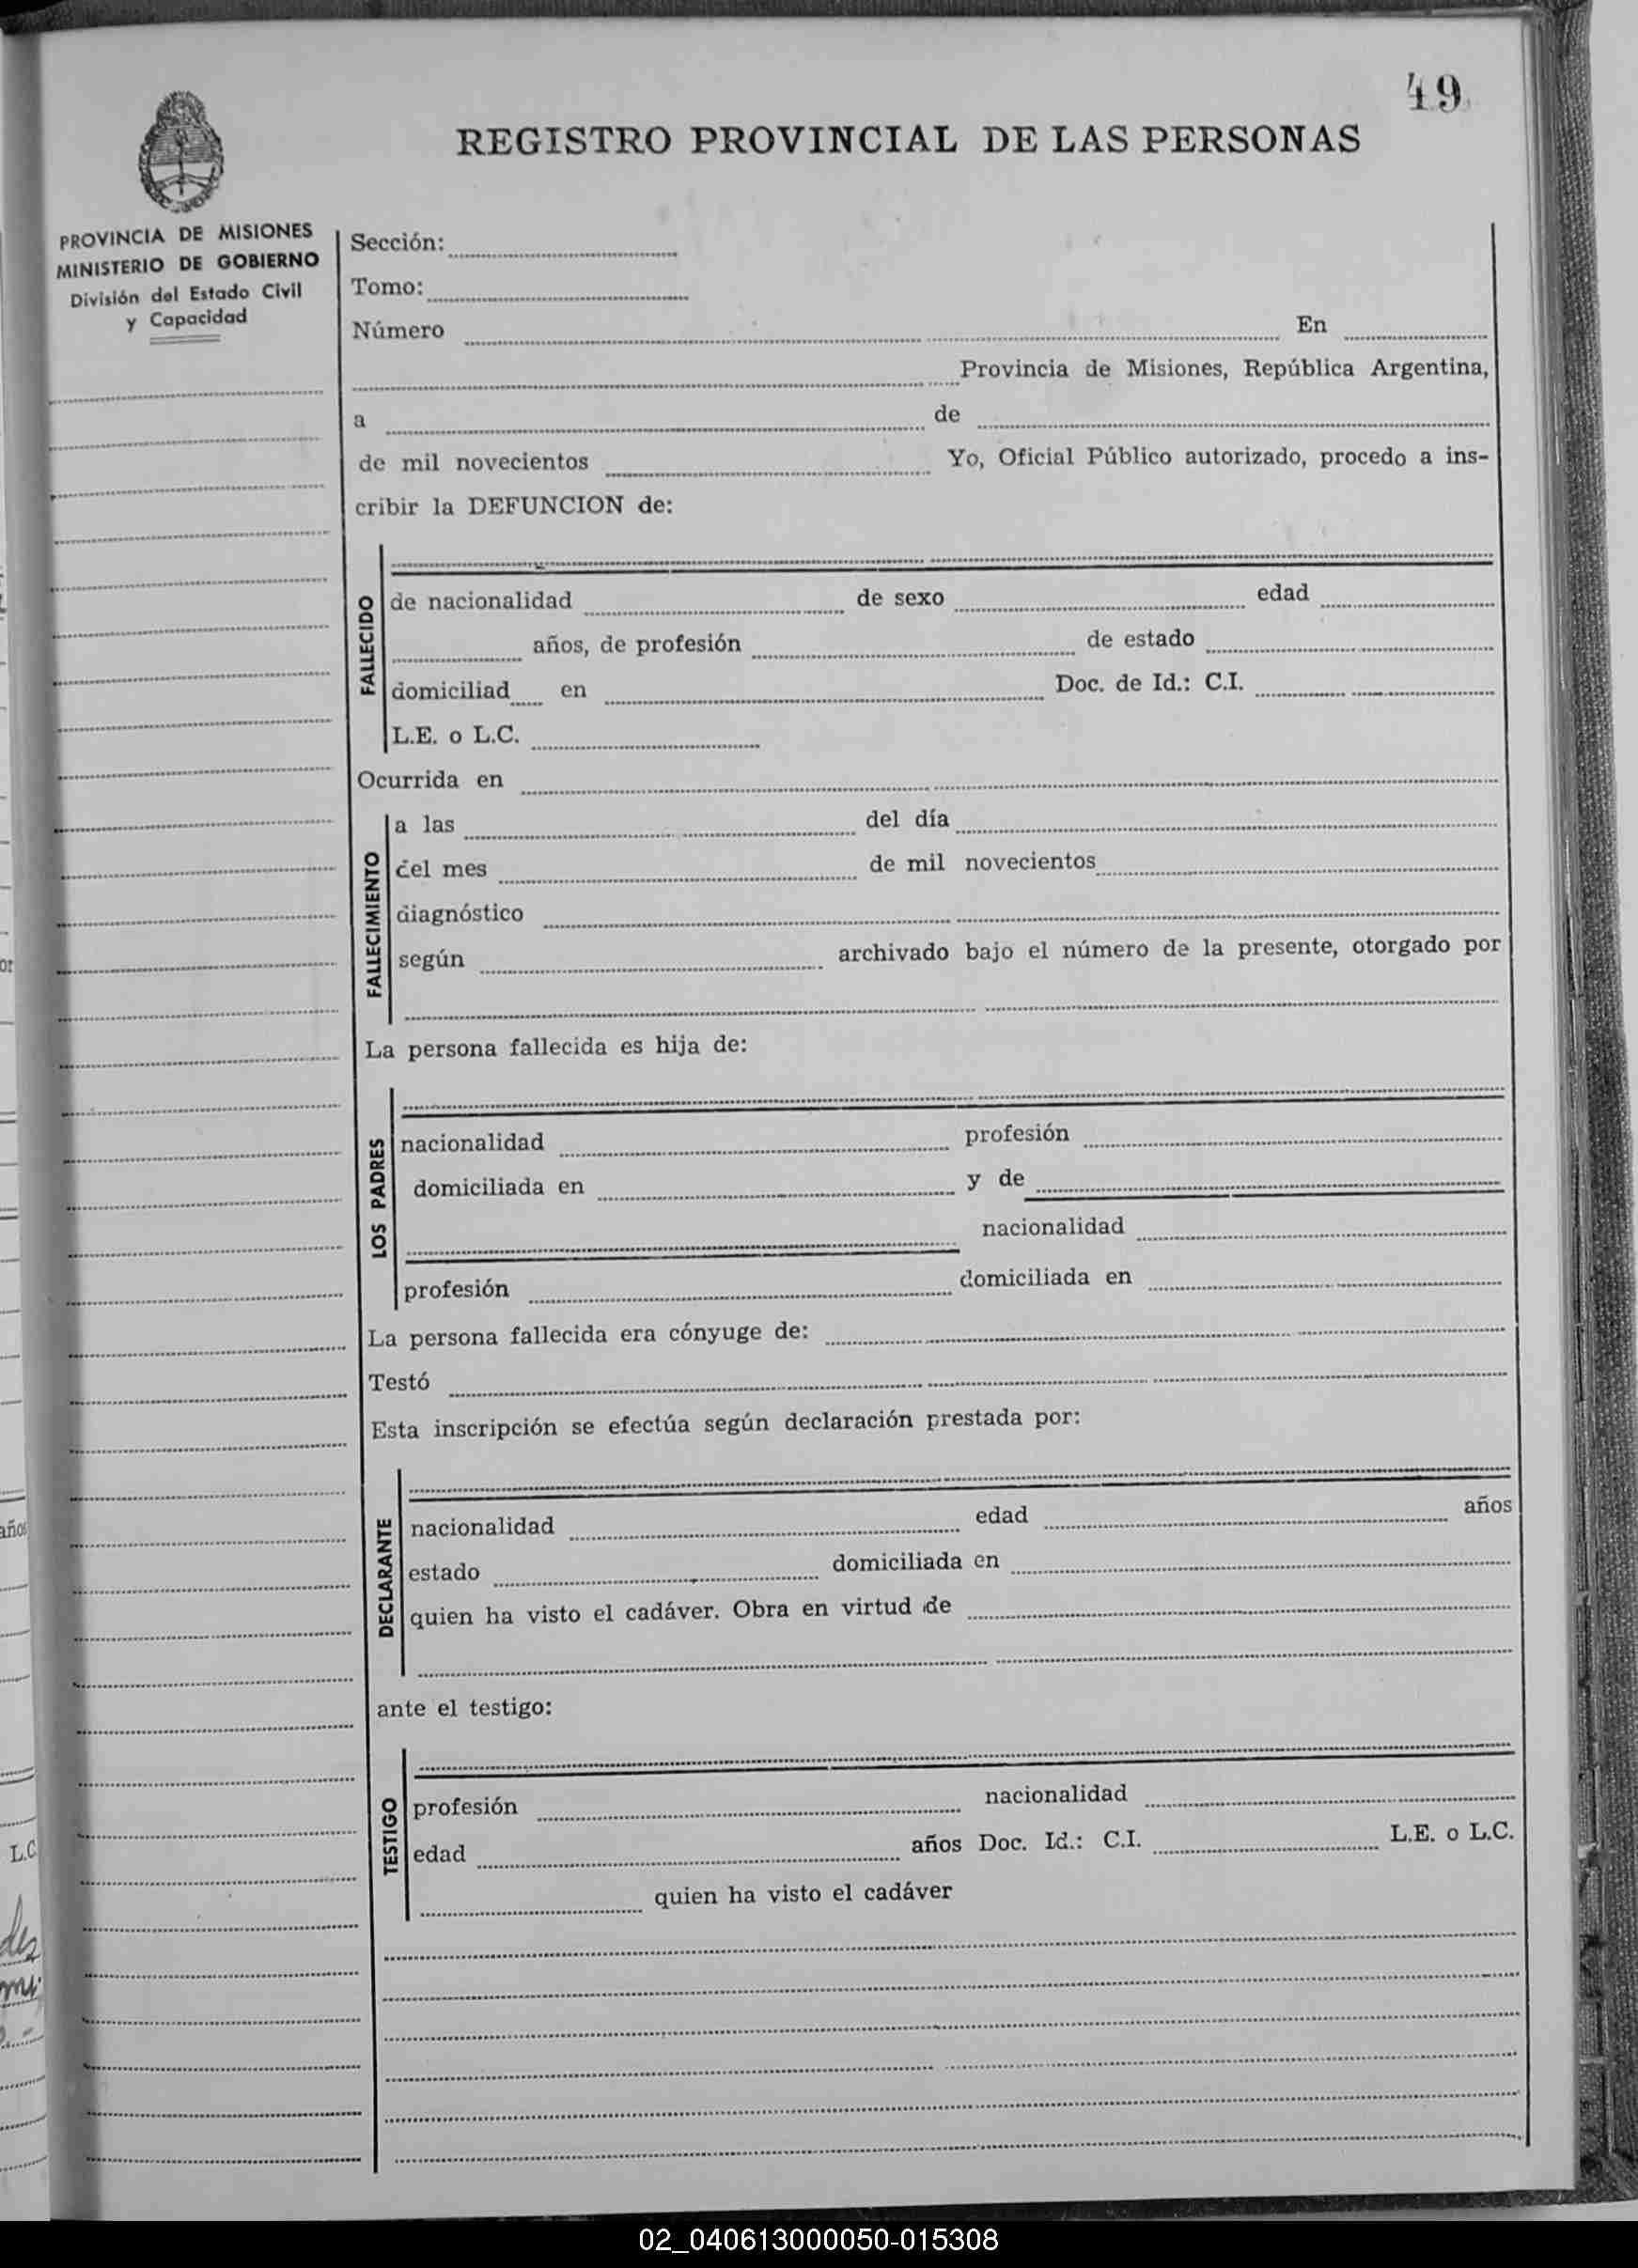 49
REGISTRO PROVINCIAL DE LAS PERSONAS
PROVINCIA DE MISIONES
MINISTERIO DE GOBIERNO
División del Estado Civil
y Capacidad
Sección:
Tomo:
Número En
Provincia de Misiones, República Argentina,
a de
de mil novecientos Yo, Oficial Público autorizado, procedo a ins-
cribir la DEFUNCION de:
FALLECIDO
de nacionalidad de sexo edad
años, de profesión de estado
domiciliad en Doc. de Id.: C.I.
L.E. o L.C.
Ocurrida en
FALLECIMIENTO
a las del día
del mes de mil novecientos
diagnóstico
según archivado bajo el número de la presente, otorgado por
La persona fallecida es hija de:
LOS PADRES
nacionalidad profesión
domiciliada en y de
nacionalidad
profesión domiciliada en
La persona fallecida era cónyuge de:
Testó
Esta inscripción se efectúa según declaración prestada por:
DECLARANTE
nacionalidad edad años
estado domiciliada en
quien ha visto el cadáver. Obra en virtud de
ante el testigo:
TESTIGO
profesión nacionalidad
edad años Doc. Id.: C.I. L.E. o L.C.
quien ha visto el cadáver
años
L.C
02_040613000050-015308